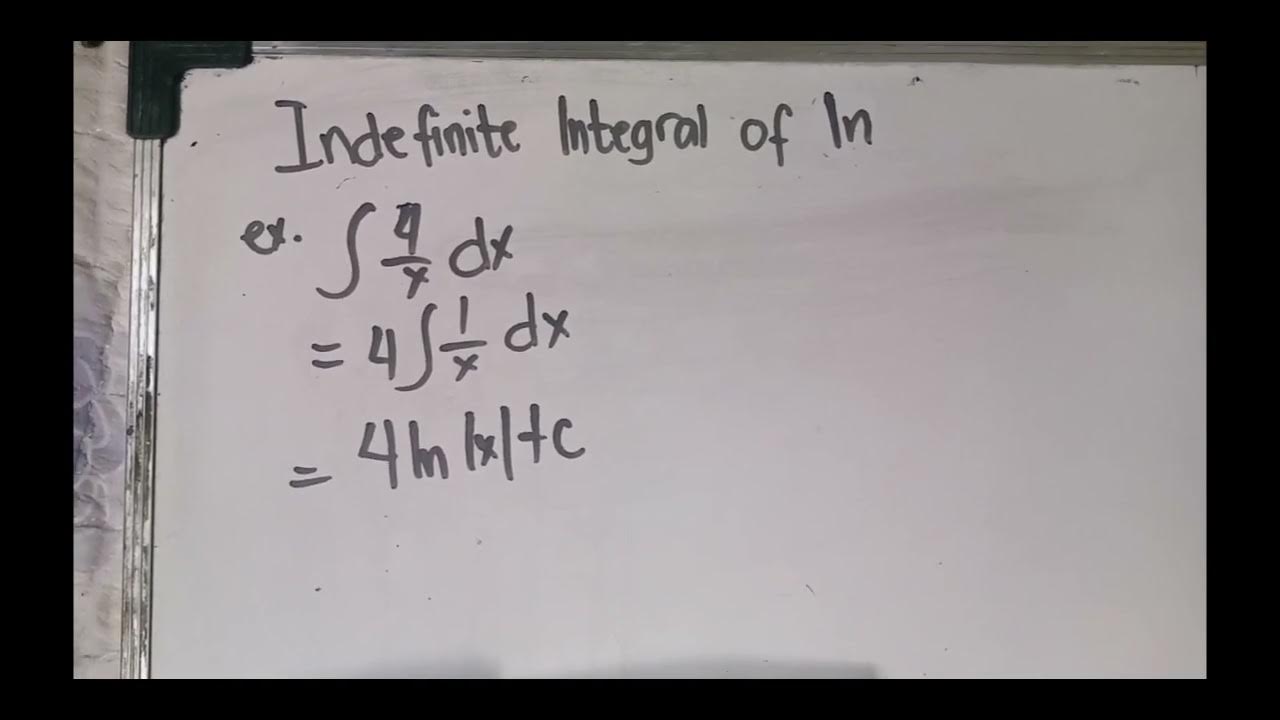 Indefinite Integral of ln
ex. ∫ 4/x dx
= 4 ∫ 1/x dx
= 4 ln |x| + c